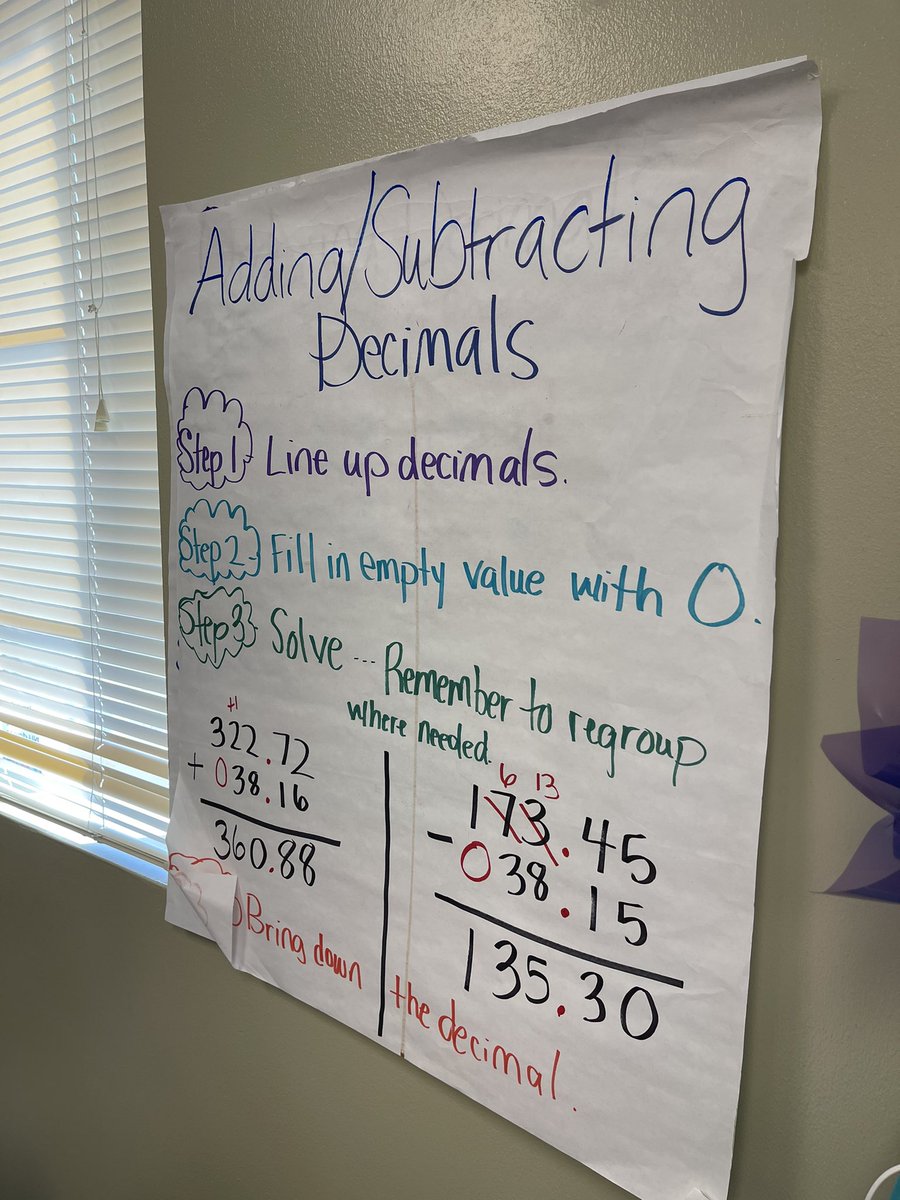 Adding/Subtracting
Decimals
Step 1 Line up decimals.
Step 2 Fill in empty value with 0.
Step 3 Solve --- Remember to regroup
where needed.
+1
322.72
+ 038.16
360.88
6 13
173.45
- 038.15
135.30
Bring down the decimal.